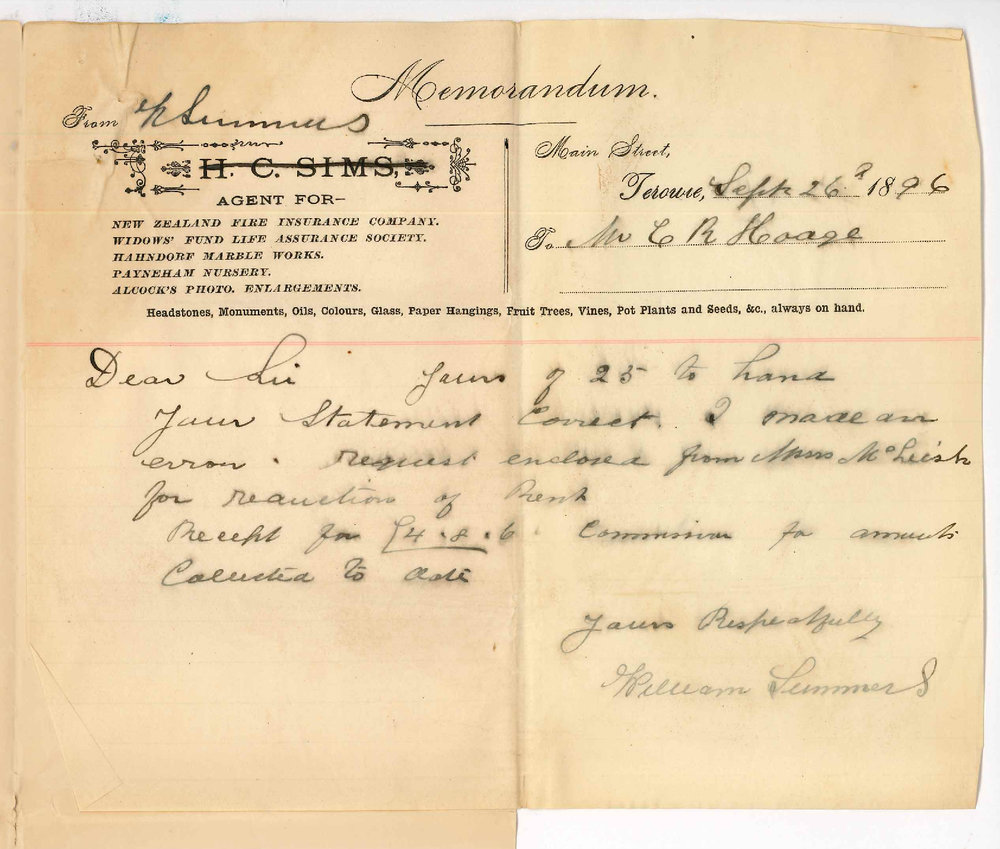 Memorandum.
From W Summers
H. C. SIMS,
AGENT FOR—
NEW ZEALAND FIRE INSURANCE COMPANY.
WIDOWS' FUND LIFE ASSURANCE SOCIETY.
HAHNDORF MARBLE WORKS.
PAYNEHAM NURSERY.
ALCOCK'S PHOTO. ENLARGEMENTS.
Main Street,
Terowie, Sept 26 1896
To Mr C R Hoage
Headstones, Monuments, Oils, Colours, Glass, Paper Hangings, Fruit Trees, Vines, Pot Plants and Seeds, &c., always on hand.
Dear Sir Yours of 25 to hand
Your Statement Correct. I made an
error. request enclosed from Messrs McLeish
for reduction of Rent
Receipt for £4.8.6 Commission for amounts
Collected to date
Yours Respectfully
William Summers